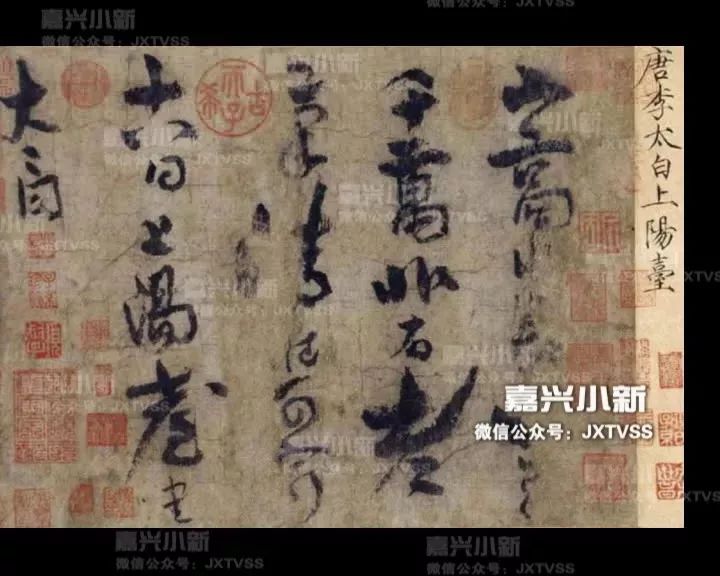 嘉兴小新
微信公众号：JXTVSS
唐李太白上陽臺
山高水長物象
千萬非有老
筆清壯何窮
十八日上陽臺書
太白
古希天子
嘉兴小新
微信公众号：JXTVSS